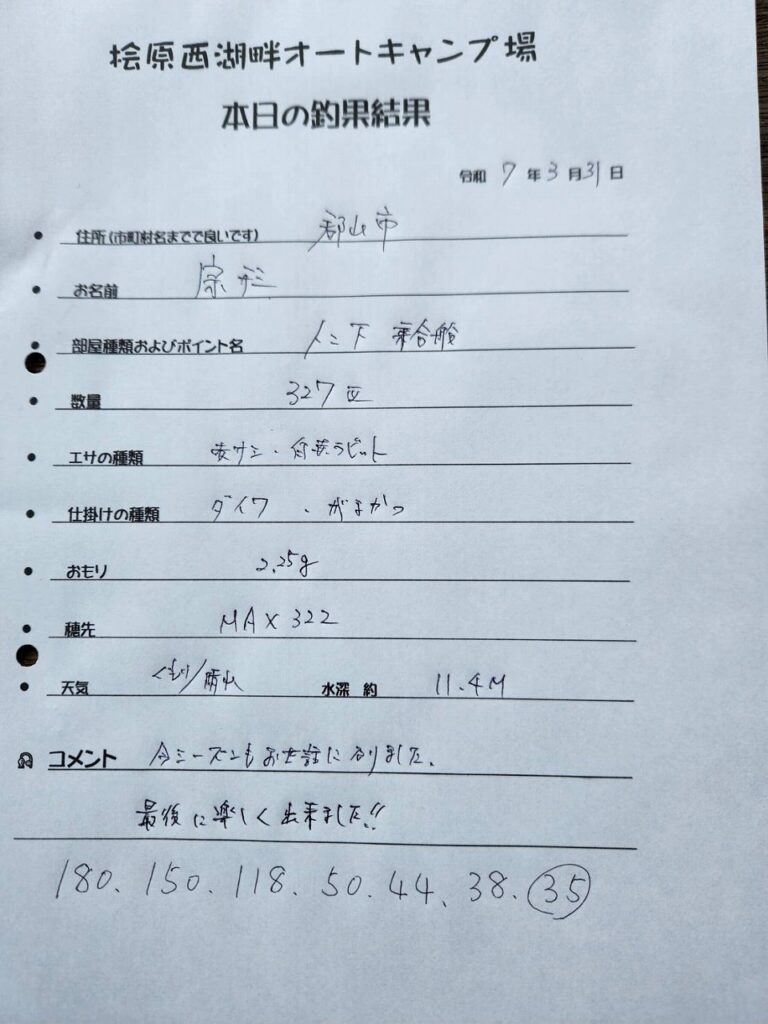 桧原西湖畔オートキャンプ場
本日の釣果結果
令和 7 年 3 月 31 日
住所(市町村名までで良いです) 郡山市
お名前 宗形
部屋種類およびポイント名 下 乗合船
数量 327匹
エサの種類 サシ・ラビット
仕掛けの種類 ダイワ・がまかつ
おもり 2.25g
穂先 MAX 322
天気 くもり/晴れ 水深 約 11.4M
コメント 今シーズンもお世話になりました。
最後に楽しく出来ました!!
180. 150. 118. 50. 44. 38. 35